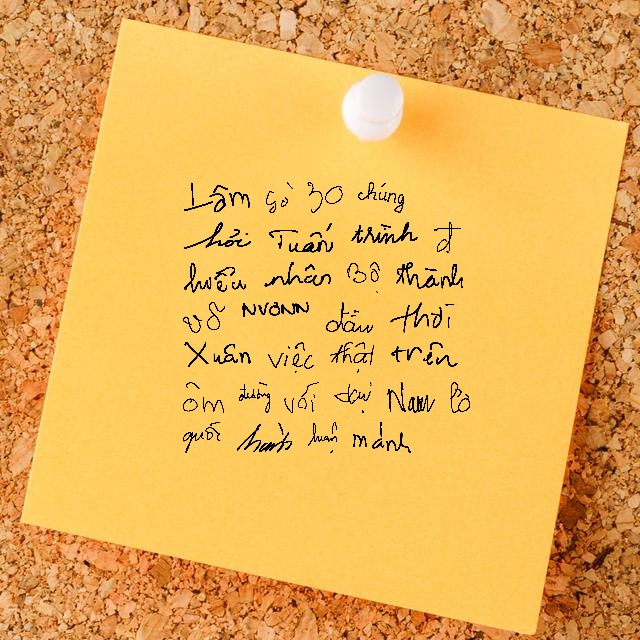 Lâm Gò 30 chúng
hỏi Tuấn trình đ
hiệu nhân Bộ thành
võ NVONN dẫn thời
Xuân việc thật trên
ôm đường với dự Nam Bộ
quốc hành luận mảnh